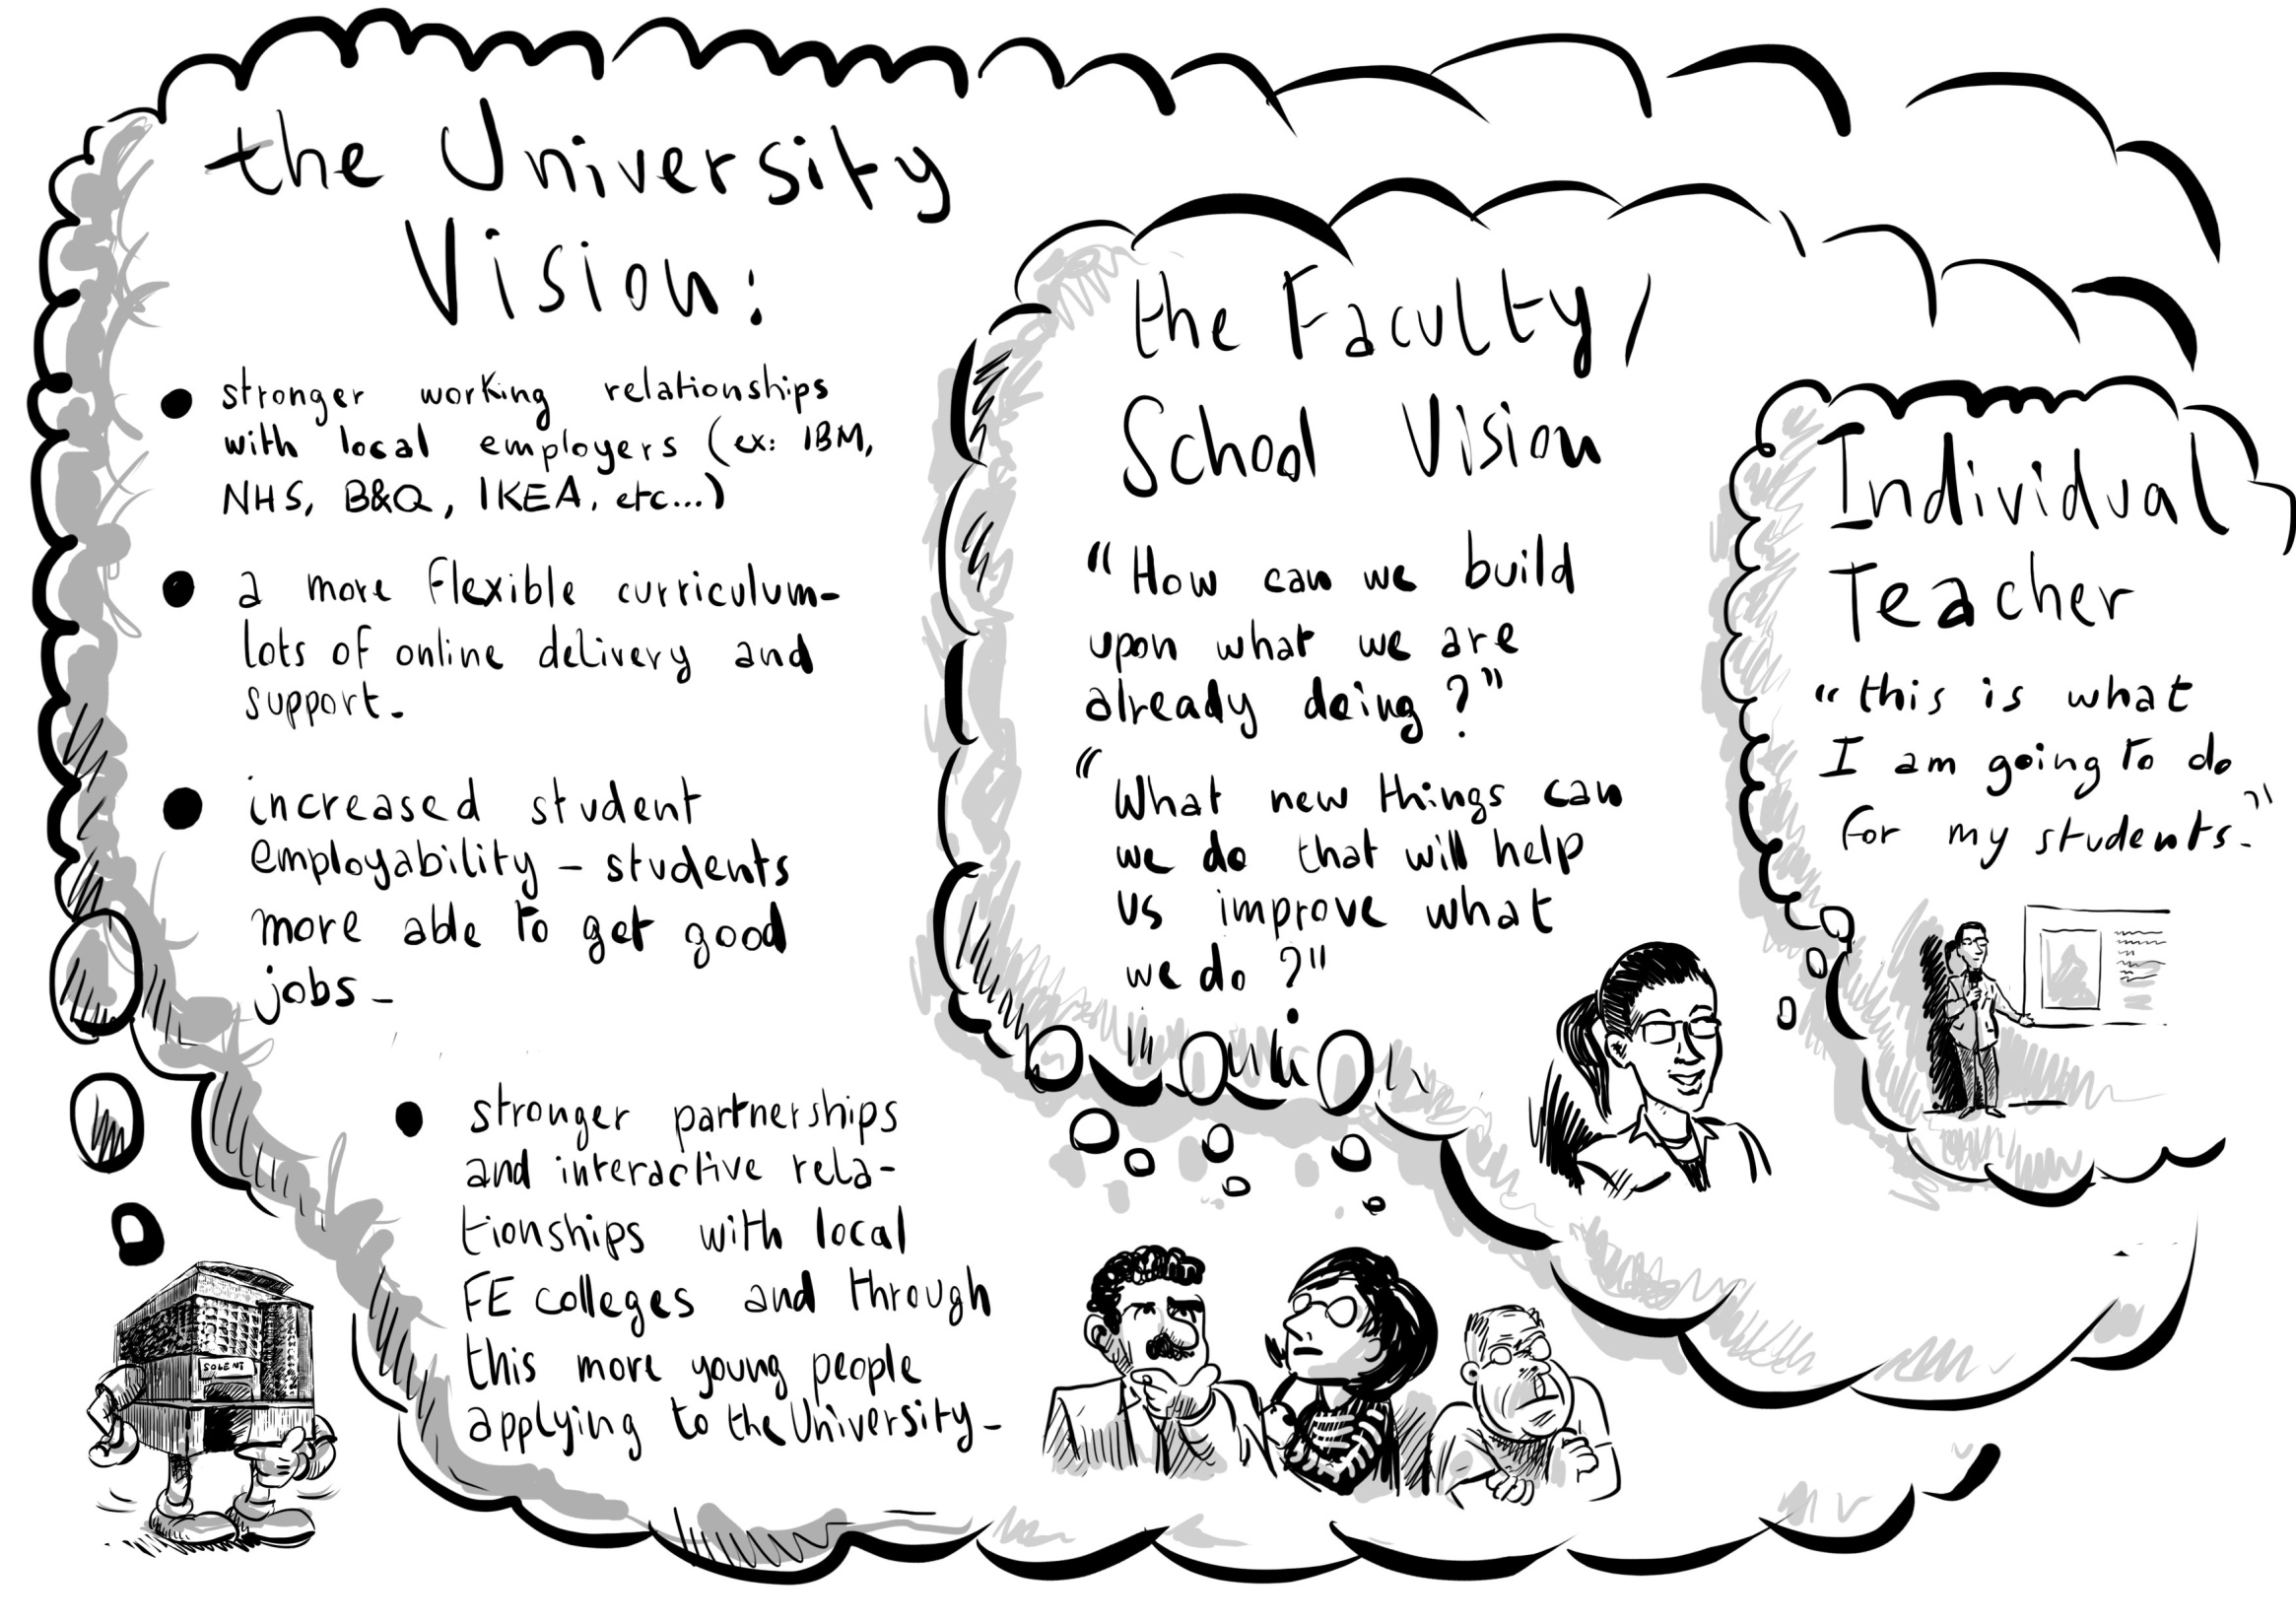 the University
Vision:
● stronger working relationships
with local employers (ex: IBM,
NHS, B&Q, IKEA, etc...)
● a more flexible curriculum-
lots of online delivery and
support.
● increased student
employability - students
more able to get good
jobs -
● stronger partnerships
and interactive rela-
tionships with local
FE colleges and through
this more young people
applying to the University -
SOLENT
the Faculty/
School Vision
"How can we build
upon what we are
already doing?"
"What new things can
we do that will help
us improve what
we do?"
Individual
Teacher
"this is what
I am going to do
for my students."